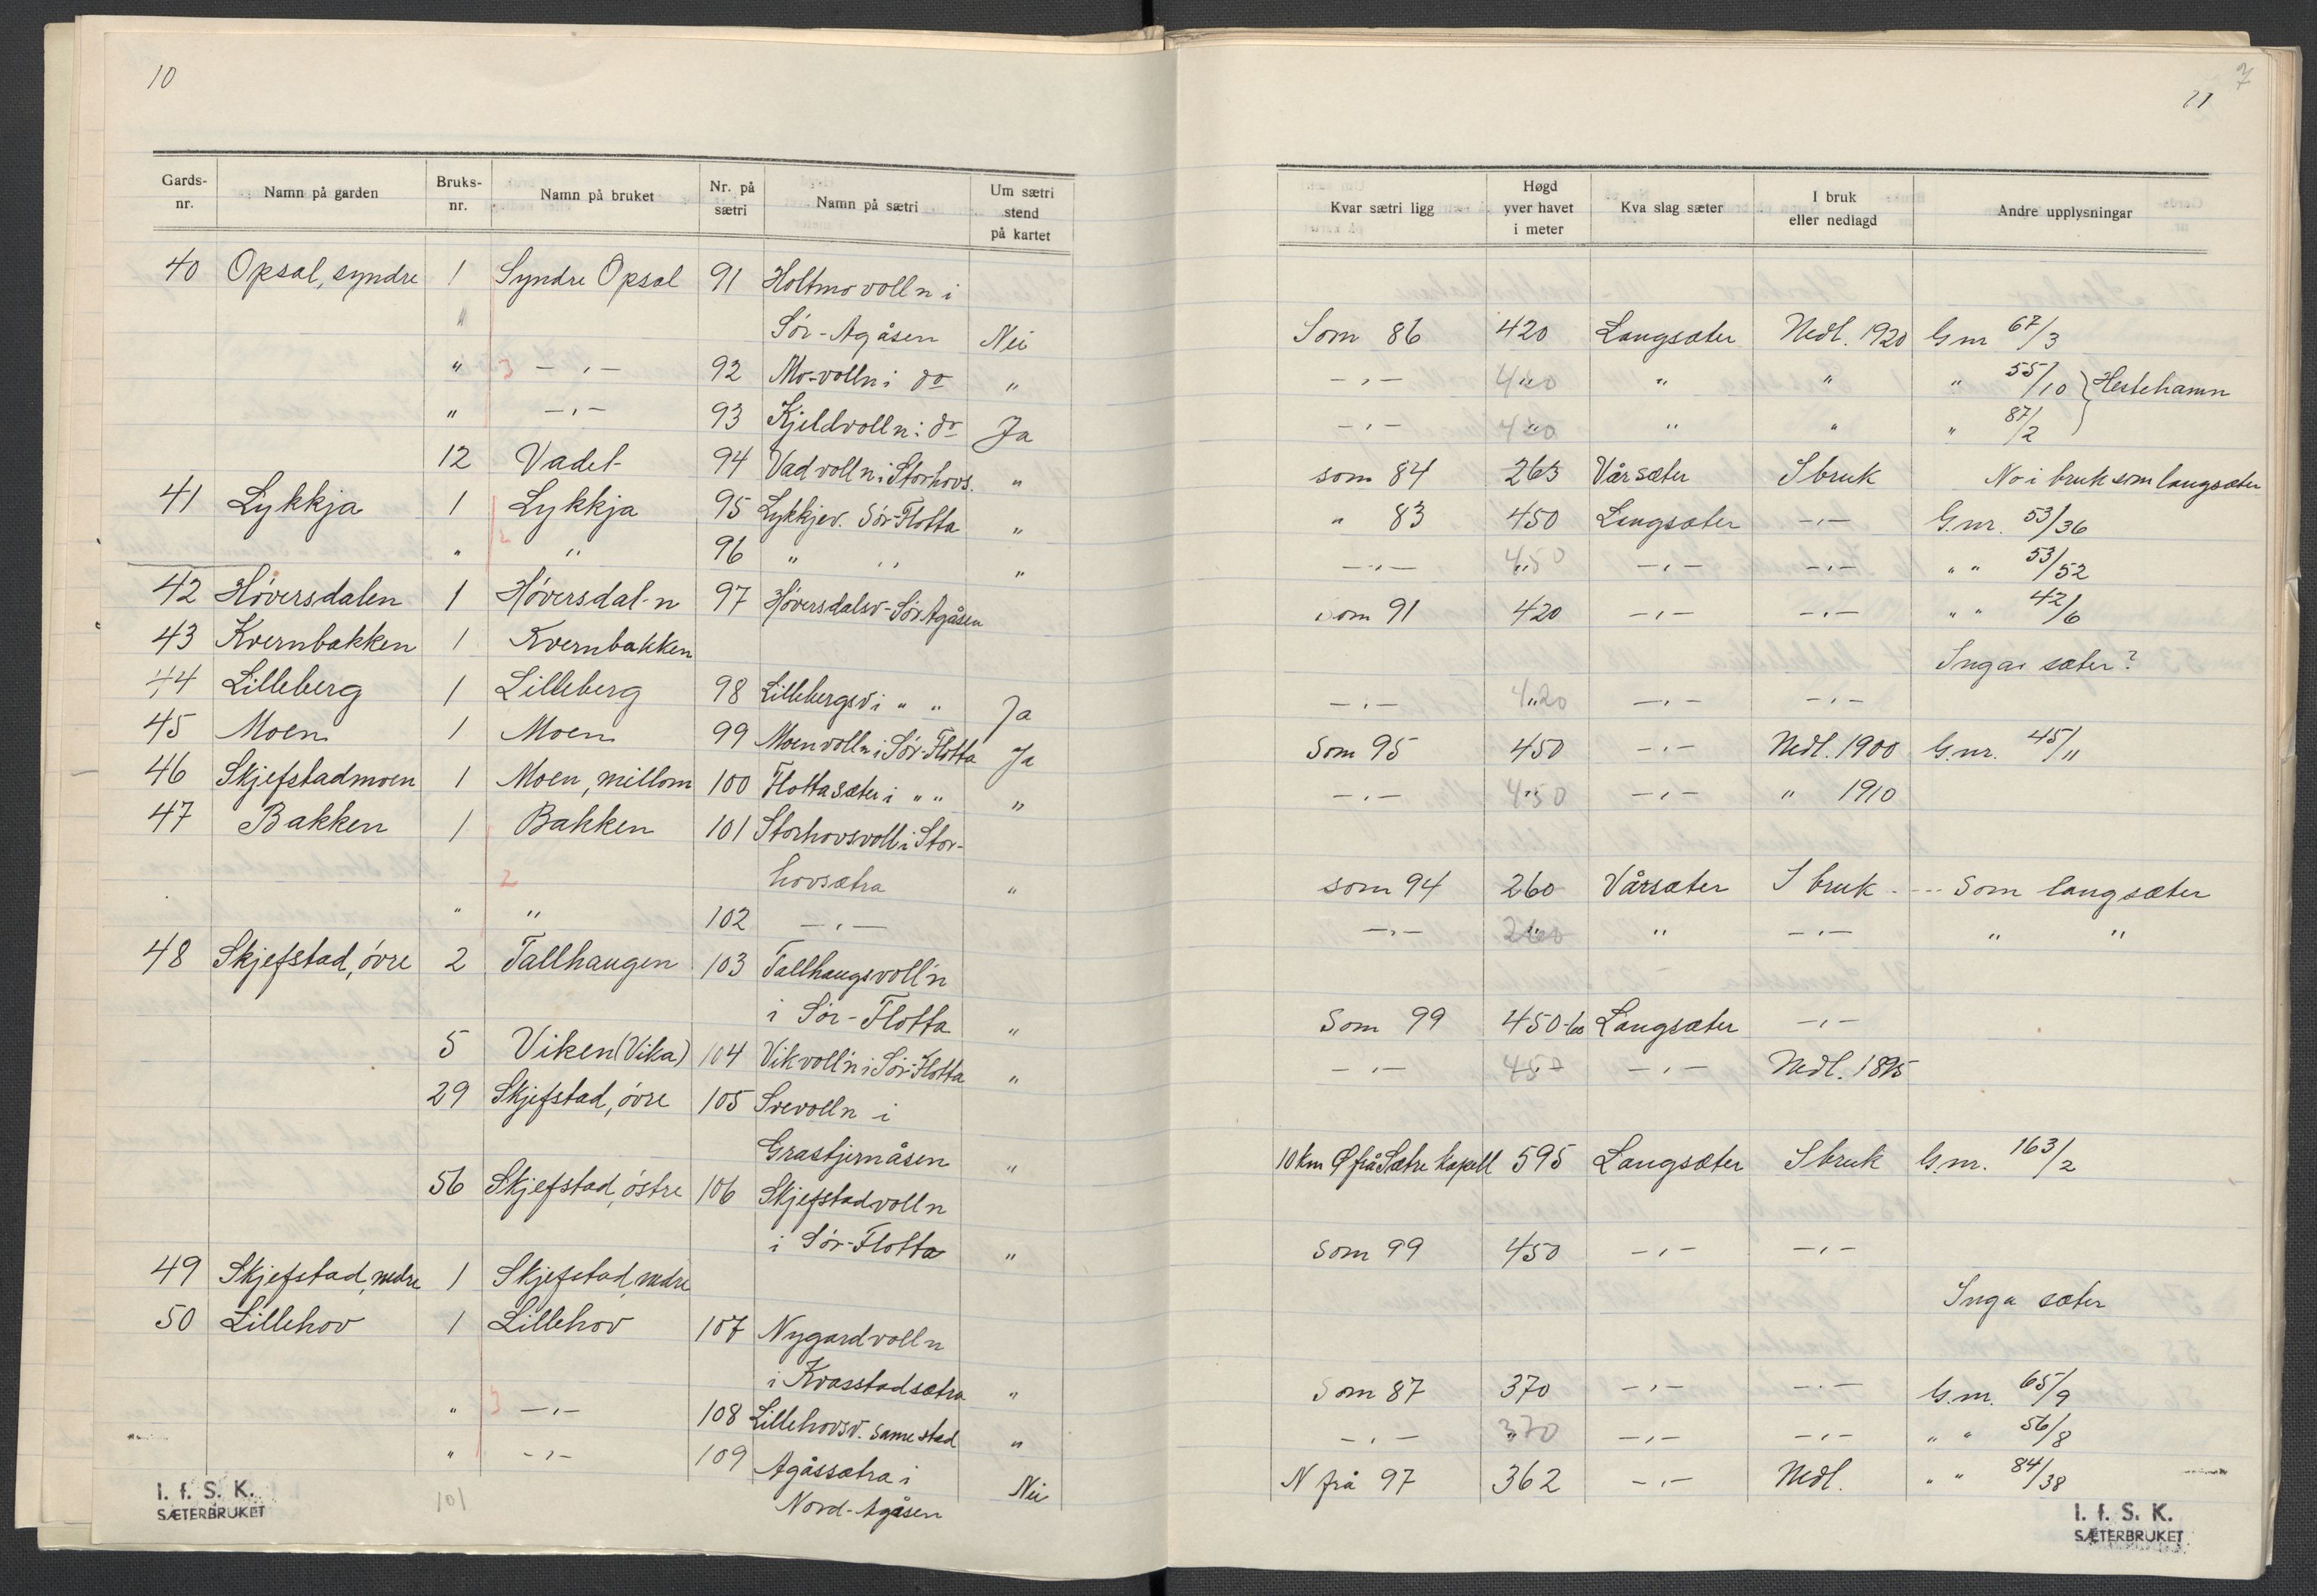 10
Gards-nr. Namn på garden Bruks-nr. Namn på bruket Nr. på sætri Namn på sætri Um sætri stend på kartet
40 Opsal, syndre 1 Syndre Opsal 91 Holtmovolln i
" Sør-Agåsen Nei
" 3 -"- 92 Mo-volln i do "
" -"- 93 Kjeldvolln i do Ja
12 Vadet 94 Vadvolln i Storhovs. "
41 Lykkja 1 Lykkja 95 Lykkjev. Sør-Flotta "
" 2 " 96 " " "
42 Hóversdalen 1 Hóversdal-n 97 Hóversdalsv-Sør Agåsen
43 Kvernbakken 1 Kvernbakken
44 Lilleberg 1 Lilleberg 98 Lillebergsv i " " Ja
45 Moen 1 Moen 99 Moenvolln i Sør-Flotta Ja
46 Skjefstadmoen 1 Moen, millom 100 Flottasæter i " " "
47 Bakken 1 Bakken 101 Storhovsvoll i Stor-
2 hovsætra "
" " 102 -"-
48 Skjefstad, óvre 2 Tallhaugen 103 Tallhaugsvoll'n
i Sør-Flotta "
5 Viken (Vika) 104 Vikvoll'n i Sør-Flotta "
29 Skjefstad, óvre 105 Svevolln i
Grastjernåsen "
56 Skjefstad, óstre 106 Skjefstadvolln
i Sør-Flotta "
49 Skjefstad, nedre 1 Skjefstad, nedre
50 Lillehov 1 Lillehov 107 Nygardvolln
i Kvasstadsætra "
" 3 -"- 108 Lillehovsv. same stad "
" -"- 109 Agåssætra i Nei
Nord-Agåsen
101
I. f. S. K.
SÆTERBRUKET
7
11
Kvar sætri ligg Høgd yver havet i meter Kva slag sæter I bruk eller nedlagd Andre upplysningar
Som 86 420 Langsæter Nedl. 1920 Gnr 67/3
-"- 420 " " " 55/10 } Hestehamn
-"- 420 " " " 87/2
som 84 265 Vårsæter I bruk No i bruk som langsæter
" 83 450 Langsæter -"- Gnr. 53/36
-"- 450 -"- -"- " " 53/52
som 91 420 -"- -"- " " 42/6
Ingai sæter?
-"- 420 -"- -"-
Som 95 450 -"- Nedl. 1900 Gnr. 45/11
-"- 450 -"- " 1910
som 94 260 Vårsæter I bruk - --- Som langsæter
-"- 260 " -"- " "
Som 99 450-60 Langsæter -"-
-"- 450 -"- Nedl. 1895
10 km Ø frå Sætre kapell 595 Langsæter I bruk G.nr. 163/2
Som 99 450 -"- -"-
Inga sæter
Som 87 370 -"- -"- G.nr. 65/9
-"- 370 -"- -"- " " 56/8
N frå 97 362 -"- Nedl. " " 84/38
I. f. S. K.
SÆTERBRUKET